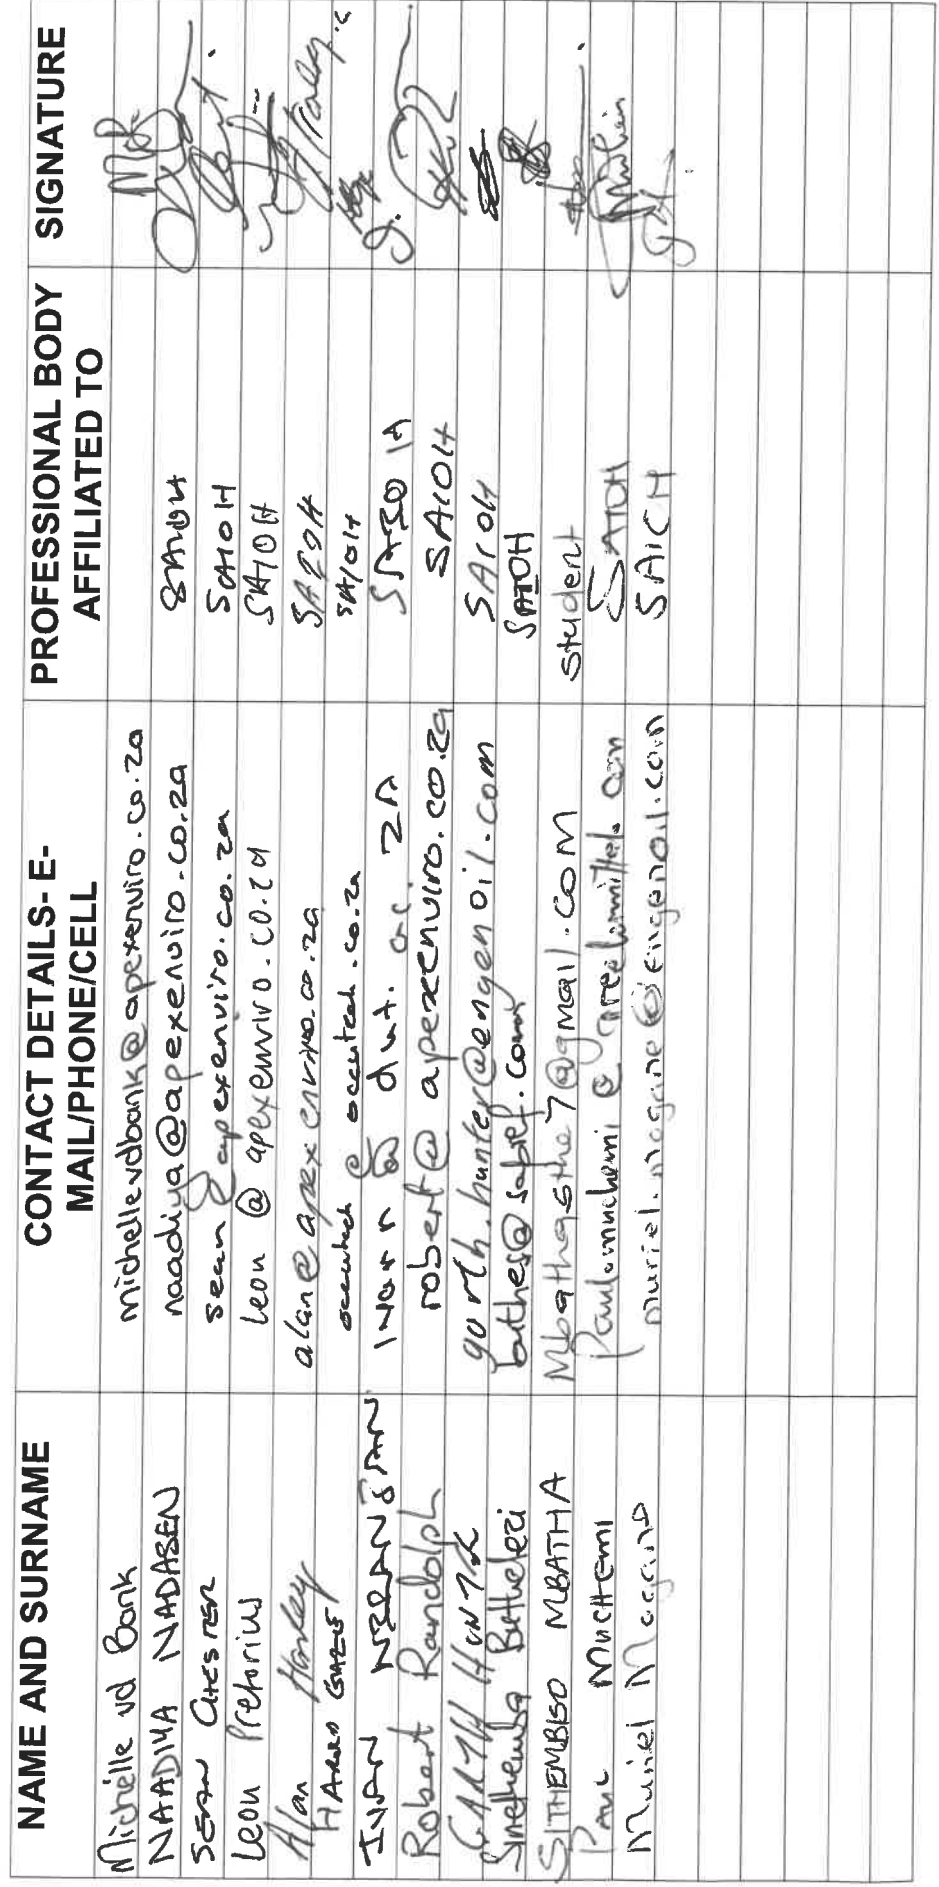 NAME AND SURNAME CONTACT DETAILS- E-MAIL/PHONE/CELL PROFESSIONAL BODY AFFILIATED TO SIGNATURE
Michelle vd Bank michellevdbank@apexenviro.co.za
NAADIYA NADASEN naadiya@apexenviro.co.za SAIOH
SEAN CHESTER sean@apexenviro.co.za SAIOH
Leon Pretorius leon @ apexenviro.co.za SAIOH
Alan Hanley alan@apexenviro.co.za SAIOH
HAROLD occutech @ occutech.co.za SAIOH
IVAN NIRANJAN ivann @ dut.ac.ZA
Robert Randolph robert@apexenviro.co.za SAIOH
GARTH HUNTER garth.hunter@engenoil.com SAIOH
Sinethemba Buthelezi buthes@sapref.com SAIOH
SITHEMBISO MBATHA Mbathasthe7@gmail.com student
PAUL MUCHEMI Paul.muchemi @ SAIOH
Muriel Mogane muriel.mogane@engenoil.com SAICH